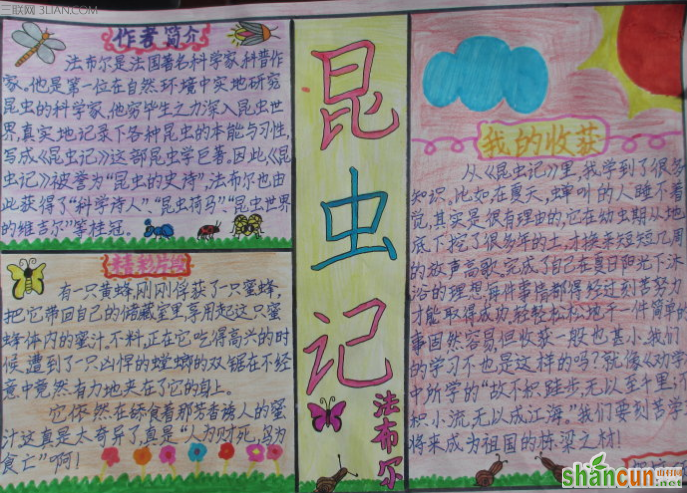 三联网 3LIAN.COM
作者简介
法布尔是法国著名科学家,科普作
家。他是第一位在自然环境中实地研究
昆虫的科学家,他穷毕生之力深入昆虫世
界,真实地记录下各种昆虫的本能与习性,
写成《昆虫记》这部昆虫学巨著。因此,《昆
虫记》被誉为“昆虫的史诗”,法布尔也由
此获得了“科学诗人”“昆虫荷马”“昆虫世界
的维吉尔”等桂冠。
精彩片段
有一只黄蜂,刚刚俘获了一只蜜蜂,
把它带回自己的储藏室里,享用起这只蜜
蜂体内的蜜汁。不料,正在它吃得高兴的时
候,遭到了一只凶悍的螳螂的双锯在不经
意中竟然有力地夹在了它的身上。
它依然在舔食着那芳香诱人的蜜
汁这真是太奇异了,真是“人为财死,鸟为
食亡”啊!
昆虫记
法布尔
我的收获
从《昆虫记》里,我学到了很多
知识,比如在夏天,蝉叫的人睡不着
觉,其实是很有理由的,它在幼虫期从地
底下挖了很多年的土,才换来短短几周
的放声高歌,完成了自己在夏日阳光下沐
浴的理想,每件事情都得经过刻苦努力
才能取得成功,轻轻松松地干一件简单的
事固然容易,但收获一般也甚小,我们
的学习不也是这样的吗?就像《劝学》
中所学的“故不积跬步,无以至千里;不
积小流,无以成江海。”我们要刻苦学习
将来成为祖国的栋梁之材!
shancun
.net